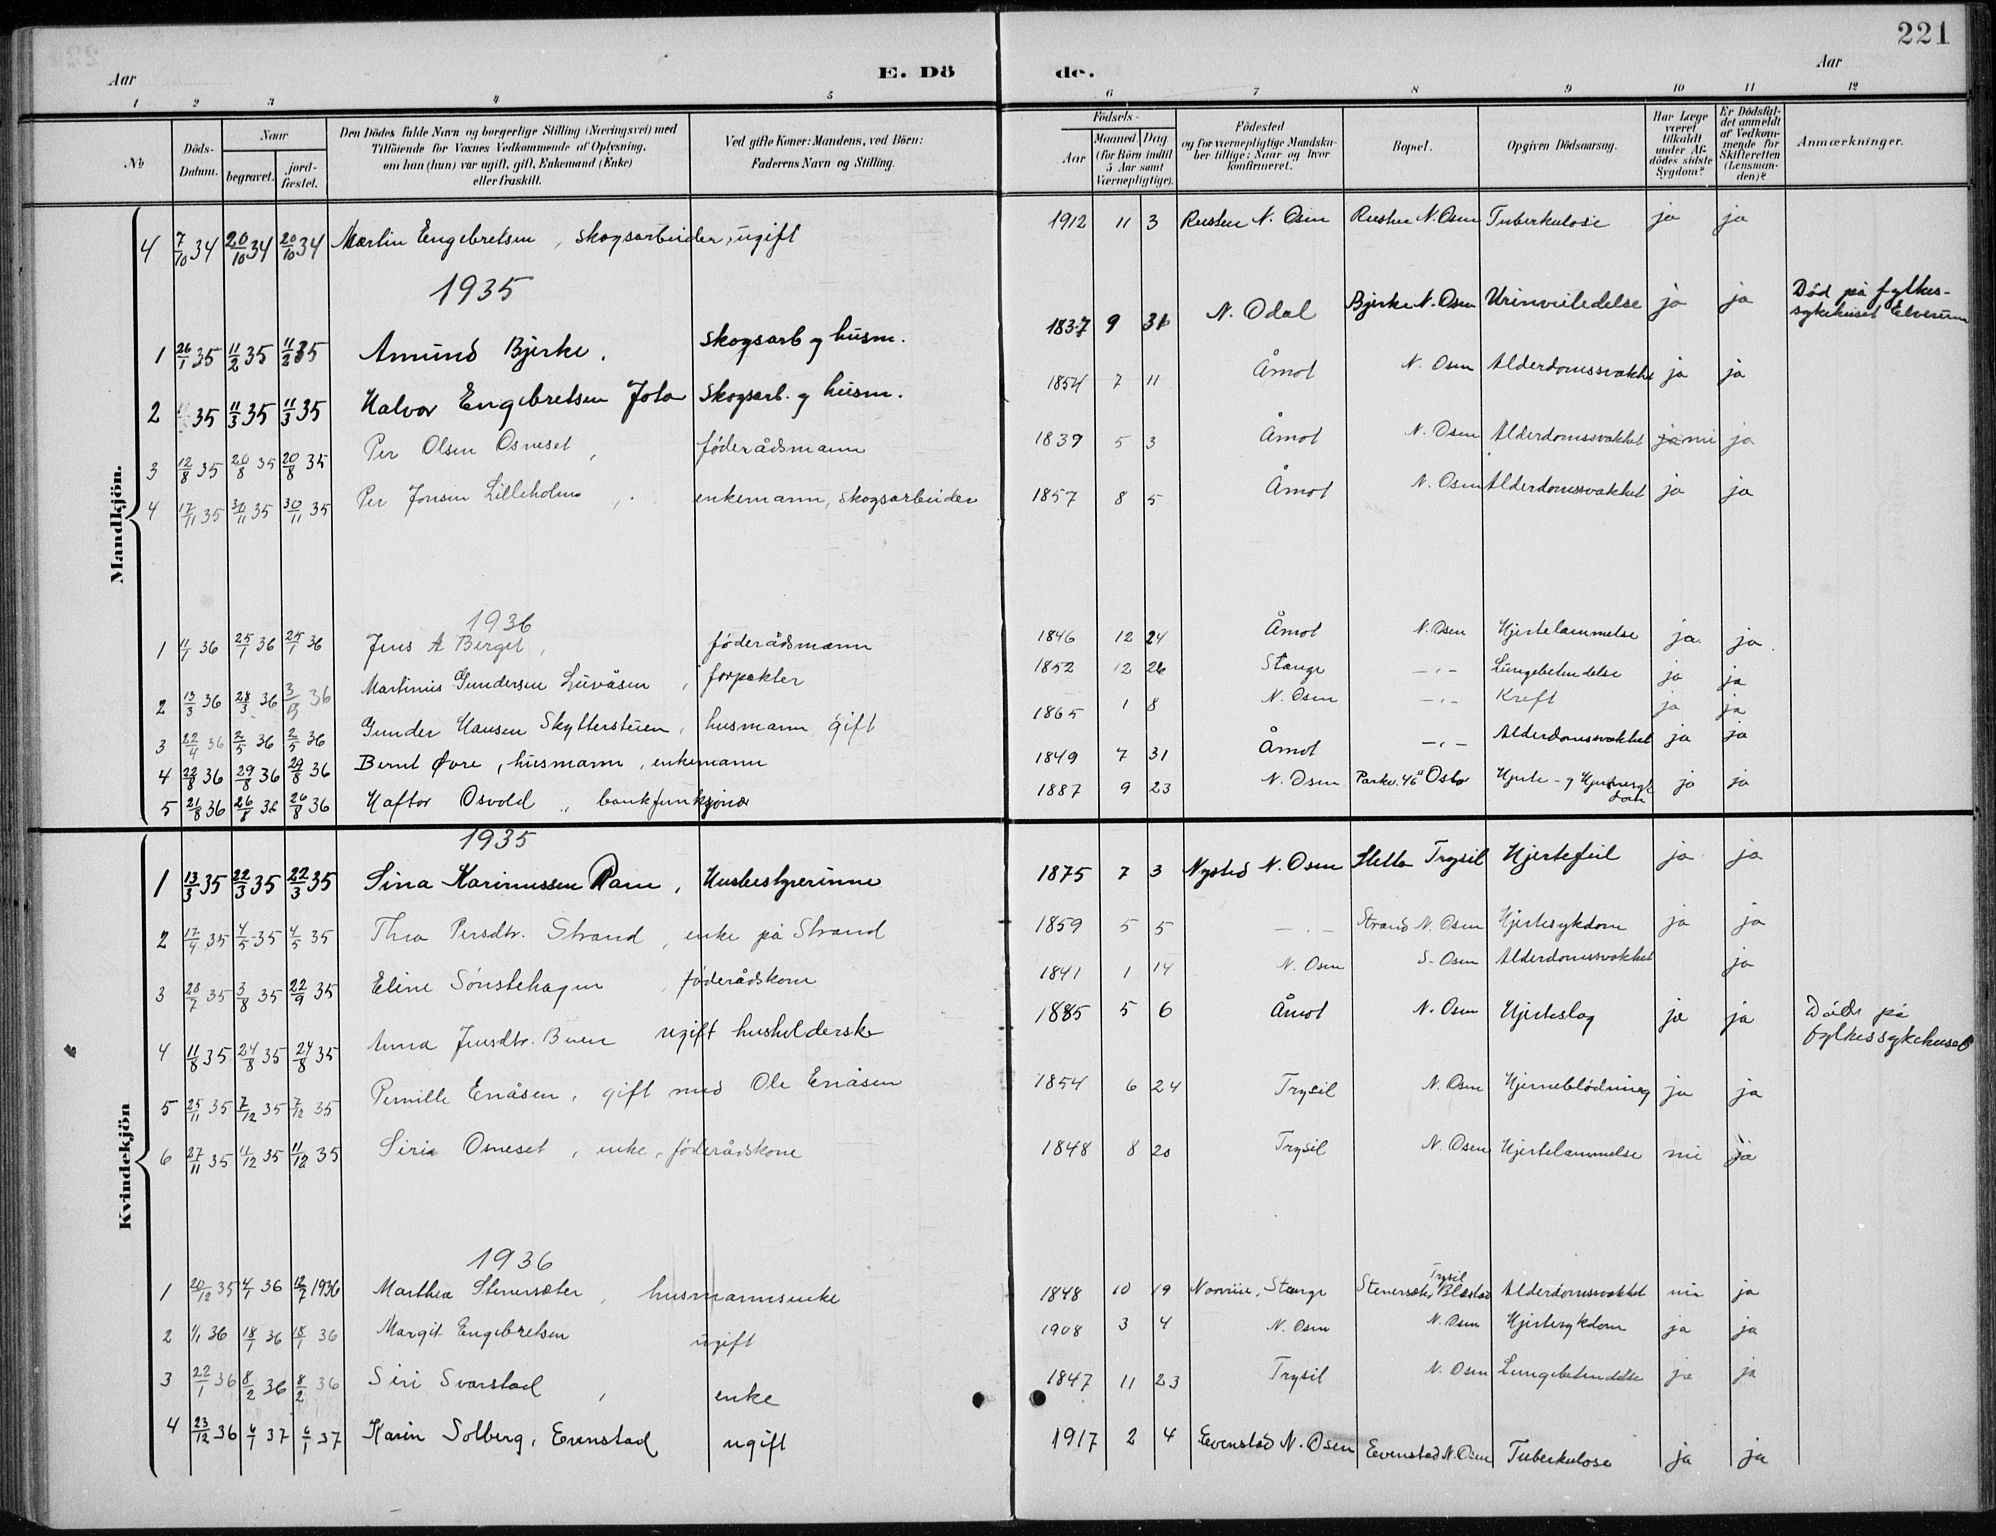 221
Aar
E. Dö
de.
Aar
1 2 3 4 5 6 7 8 9 10 11 12
No
Döds-Datum.
Naar
begravet.
jordfæstet.
Den Dödes fulde Navn og borgerlige Stilling (Næringsvei) med
Tilföiende for Voxnes Vedkommende af Oplysning,
om han (hun) var ugift, gift, Enkemand (Enke)
eller fraskilt.
Ved gifte Koner: Mandens, ved Börn:
Faderens Navn og Stilling.
Födsels-
Aar
Maaned. Dag
(for Börn indtil
5 Aar samt
Værnepligtige).
Födested
og for værnepligtige Mandskaber tillige: Naar og hvor
konfirmeret.
Bopæl.
Opgiven Dödsaarsag.
Har Læge
været
tilkaldt
under Afdödes sidste
Sygdom?
Er Dödsfaldet anmeldt
af Vedkommende for
Skifteretten
(Lensmanden)?
Anmærkninger.
Mandkjön.
4 7/10 34 20/10 34 20/10 34 Martin Engebretsen, skogsarbeider, ugift 1912 11 3 N. Osen N. Osen Tuberkulose ja ja
1935
1 26/1 35 11/2 35 11/2 35 Amund Bjerke. skogsarb. og husm. 1837 9 N. Odal Bjerke N. Osen ja ja Død på fylkes-
sykehuset Elverum
2 35 11/3 35 11/3 35 Halvor Engebretsen skogsarb. og husm. 1854 7 11 Åmot N. Osen Alderdomssvakhet ja ja
3 12/8 35 20/8 35 20/8 35 Per Olsen Osneset, føderådsmann 1839 5 3 Åmot N. Osen Alderdomssvakhet nei ja
4 17/11 35 30/11 35 30/11 35 Per Jonsen Lilleholmen, enkemann, skogsarbeider 1857 8 5 Åmot N. Osen Alderdomssvakhet ja ja
1936
1 11/1 36 25/1 36 25/1 36 Jens A Berget, føderådsmann 1846 12 24 Åmot N. Osen Hjertelammelse ja ja
2 13/3 36 28/3 36 3/5 36 Martinus Gundersen Luvåsen, forpakter 1852 12 26 Stange -"- Lungebetendelse ja ja
3 22/4 36 2/5 36 2/5 36 Gunder Hansen Skyttersteien, husmann gift 1865 1 8 N. Osen -"- Kreft ja ja
4 22/8 36 29/8 36 29/8 36 Bernt Øvre, husmann, enkemann 1849 7 31 Åmot -"- Alderdomssvakhet ja ja
5 21/8 36 26/8 36 26/8 36 Haftor Osvold, bankfunksjonær 1887 9 23 N. Osen Parkv. Oslo Hjerte- og ja ja
Kvindekjön
1935
1 13/3 35 22/3 35 22/3 35 Sina Karinussen Ram, Husbestyrerinne 1875 7 3 Nysted N. Osen Sletta Trysil Hjertefeil ja ja
2 17/4 35 4/5 35 4/5 35 Thea Persdtr. Strand, enke på Strand 1859 5 5 -"- Strand N. Osen Hjertesykdom ja ja
3 28/7 35 3/8 35 22/9 35 Eline Sønstehagen, føderådskone 1841 1 14 N. Osen S. Osen Alderdomssvakhet ja
4 11/8 35 24/8 35 24/8 35 Anna Jensdtr. Buen ugift husholderske 1885 5 6 Åmot N. Osen Hjerteslag ja ja Døde på
fylkessykehuset
5 25/11 35 7/12 35 7/12 35 Pernille Enåsen, gift med Ole Enåsen 1854 6 24 Trysil N. Osen Hjerneblødning ja ja
6 27/11 35 11/12 35 11/12 35 Siri Osneset, enke, føderådskone 1848 8 20 Trysil N. Osen Hjertelammelse nei ja
1936
1 20/12 35 4/1 36 12/7 1936 Marthea Stenersæter, husmannsenke 1848 10 19 Stange Stenersæter Trysil Alderdomssvakhet nei ja
2 1/1 36 18/1 36 18/1 36 Margit Engebretsen ugift 1908 3 4 N. Osen N. Osen Hjertesykdom ja ja
3 22/1 36 8/2 36 8/2 36 Siri Svarstad, enke 1847 11 23 Trysil N. Osen Lungebetendelse ja ja
4 23/12 36 6/1 37 6/1 37 Karin Solberg, Evenstad ugift 1917 2 4 Evenstad N. Osen Evenstad N. Osen Tuberkulose ja ja